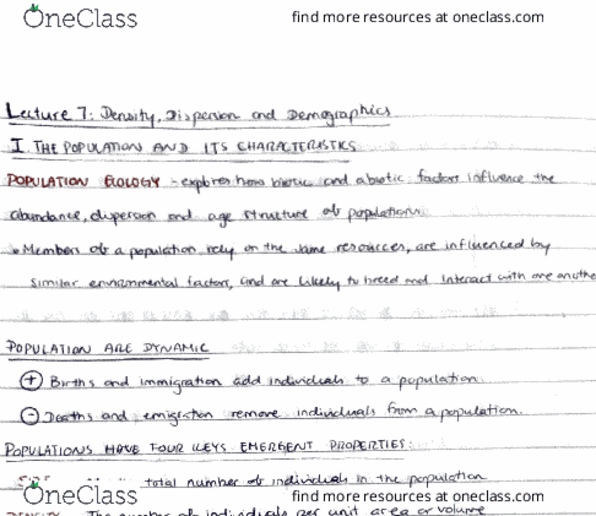 OneClass
find more resources at oneclass.com
Lecture 7: Density, Dispersion and Demographics
I. THE POPULATION AND ITS CHARACTERISTICS
POPULATION ECOLOGY - explores how biotic and abiotic factors influence the
abundance, dispersion and age structure of populations
• Members of a population rely on the same resources, are influenced by
similar environmental factors, and are likely to breed and interact with one anothe
POPULATION ARE DYNAMIC
+ Births and immigration add individuals to a population.
- Deaths and emigration remove individuals from a population.
POPULATIONS HAVE FOUR KEYS EMERGENT PROPERTIES:
total number of individuals in the population
OneClass
find more resources at oneclass.com
The number of individuals per unit area or volume